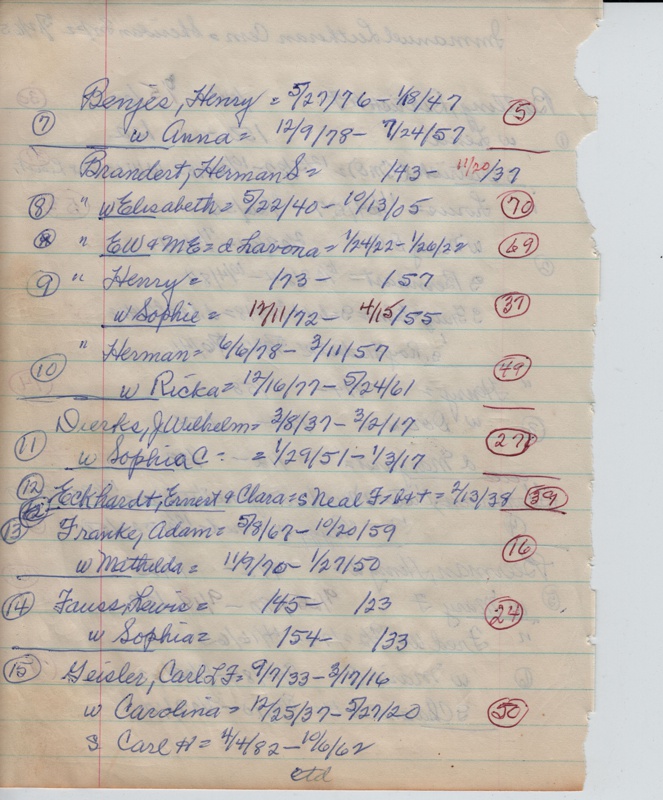 Benjes, Henry = 5/27/76 - 1/18/47 (5)
(7) w Anna = 12/9/78 - 7/24/57
Brandert, Herman S = /43 - 11/20/37
(8) " w Elisabeth = 5/22/40 - 10/13/05 (70)
" EW & ME = d Lavona = 1/24/22 - 1/26/22 (69)
(9) " Henry = /73 - /57
w Sophie = 12/11/72 - 4/15/55 (37)
" Herman = 6/6/78 - 3/11/57
(10) w Ricka = 12/16/77 - 5/24/61 (49)
Dierks, J Wilhelm = 3/8/37 - 3/2/17
(11) w Sophia C = = 1/29/51 - 1/3/17 (27)
(12) Eckhardt, Ernest & Clara = s Neal F = = 2/13/38 (39)
(13) Franke, Adam = 5/8/67 - 10/20/59 (16)
w Mathilda = 11/9/70 - 1/27/50
(14) Fauss, Lewis = /45 - /23 (24)
w Sophia = /54 - /33
(15) Geisler, Carl L F = 9/7/33 - 3/17/16
w Carolina = 12/25/37 - 5/27/20 (50)
s Carl H = 4/4/82 - 10/6/62
ctd